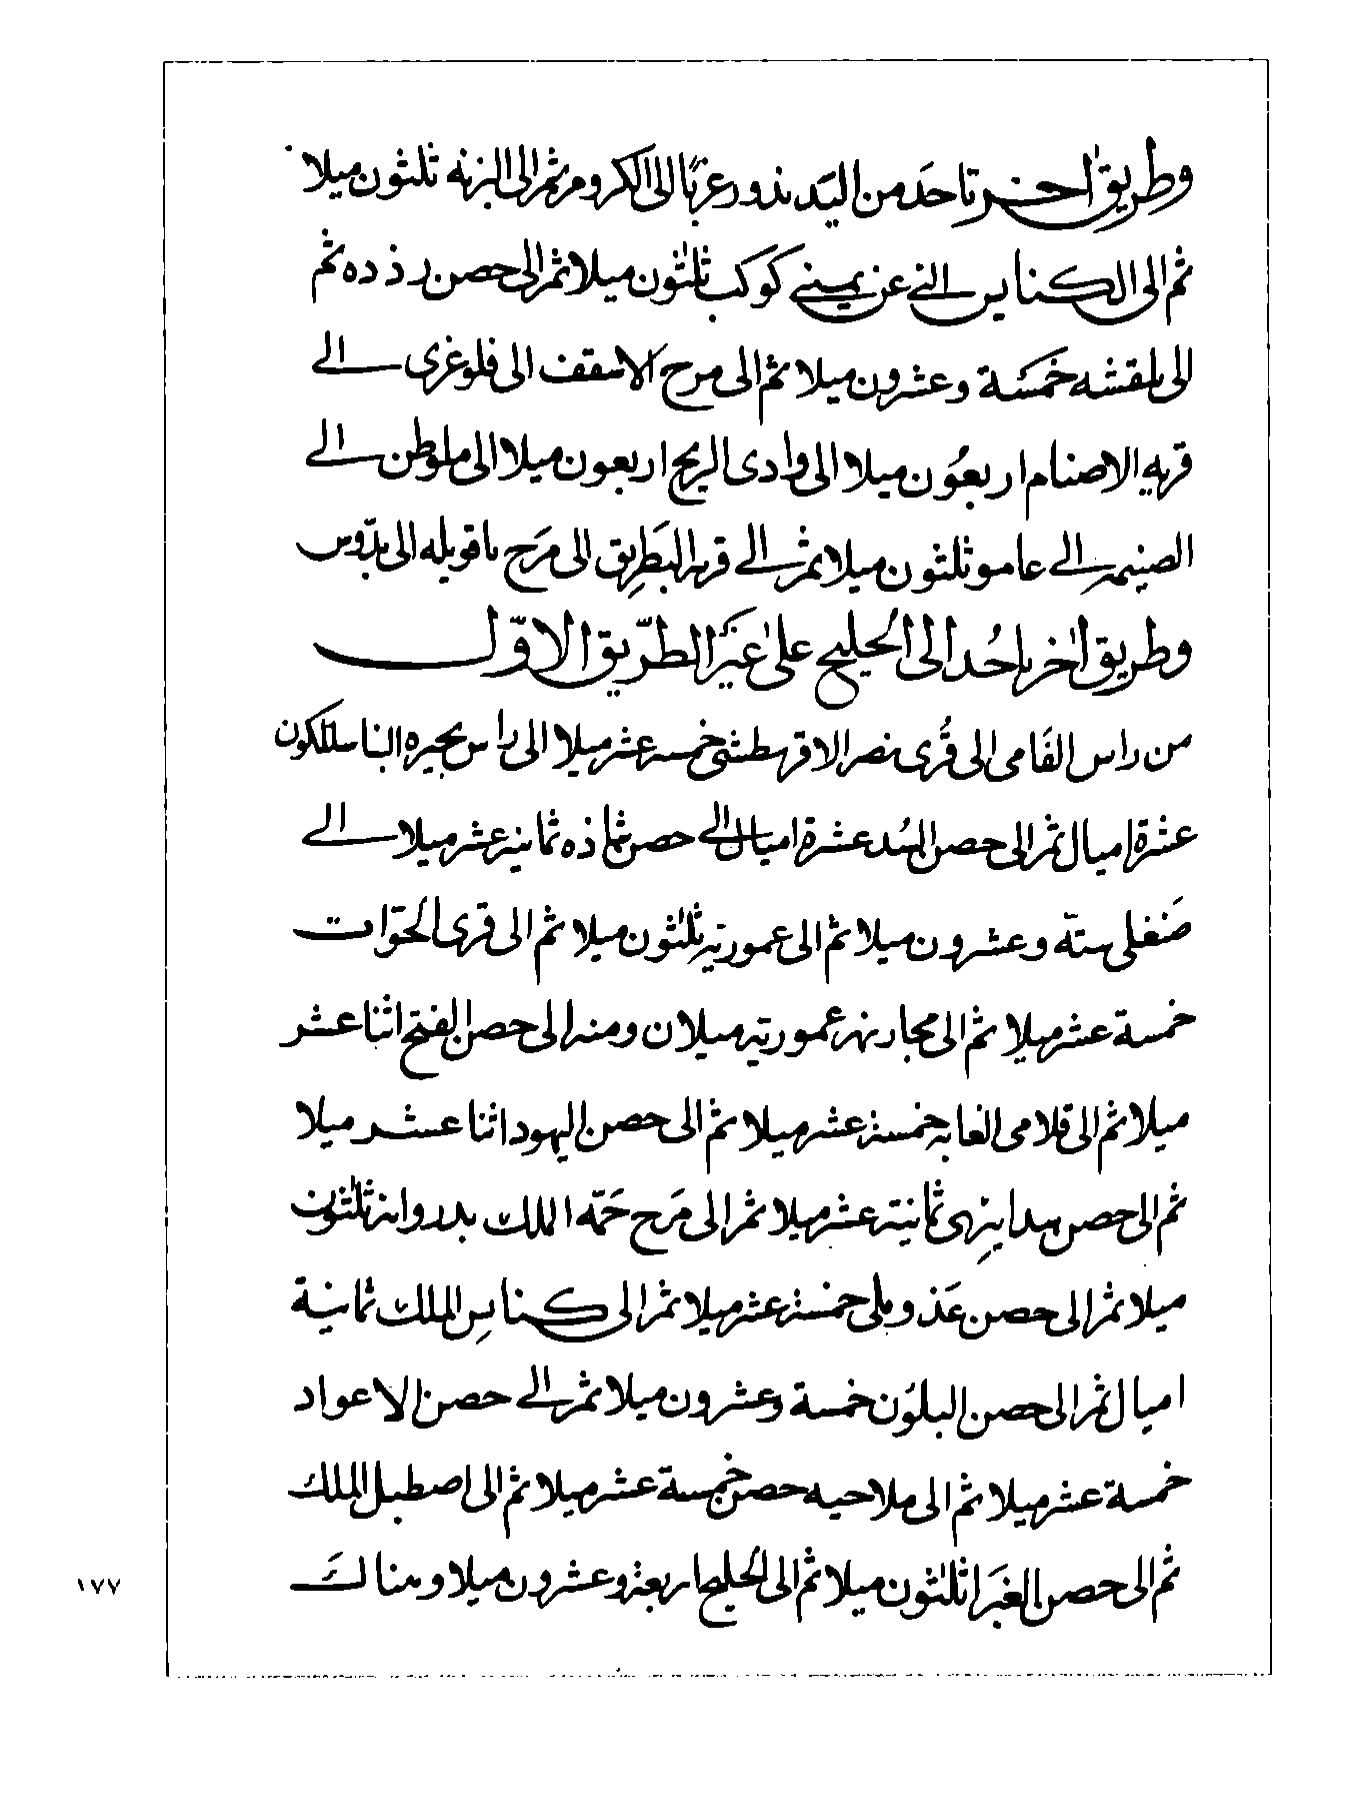 وطريق اخر تاخذ من البدندور غربًا الى الكروم ثم الى البرنه ثلثون ميلا
ثم الى الكنايس التي عن يميني كوكب ثلثون ميلا ثم الى حصن رذده ثم
الى بلقشه خمسة وعشرون ميلا ثم الى مرج الاسقف الى فلوغرى الى
قريه الاصنام اربعون ميلا الى وادى الريح اربعون ميلا الى ملوطن الى
الصنيم الى عامو ثلثون ميلا ثم الى قريه البطريق الى مرج باقوبله الى بدّوس
وطريق اخر ياخذ الى الخليج على غير الطريق الاوّل
من راس القامى الى قُرى نصر الاقريطشى خمسه عشر ميلا الى راس بحيره الباسلكون
عشرة اميال ثم الى حصن السُند عشرة اميال الى حصن ثماذه ثمانيه عشر ميلا الى
ضغلى ستّه وعشرون ميلا ثم الى عموريه ثلثون ميلا ثم الى قرى الحوّات
خمسة عشر ميلا ثم الى مجاز نهر عموريه ميلان ومنه الى حصن الفتح اثنا عشر
ميلا ثم الى قلامى الغابه خمسة عشر ميلا ثم الى حصن اليهود اثنا عشر ميلا
ثم الى حصن ثمانية عشر ميلا ثم الى مَرج حَمّه الملك بدروانه ثلثون
ميلا ثم الى حصن عَذوبلى خمسة عشر ميلا ثم الى كنايس الملك ثمانية
اميال ثم الى حصن البلوُن خمسة وعشرون ميلا ثم الى حصن الاعواد
خمسة عشر ميلا ثم الى ملاحيه حصن خمسة عشر ميلا ثم الى اصطبل الملك
ثم الى حصن الغبَرا ثلثون ميلا ثم الى الخليج اربعة وعشرون ميلا وهناك
١٧٧